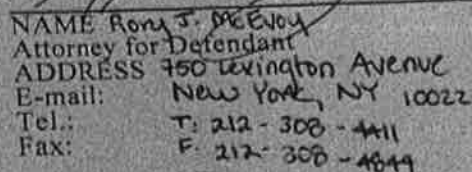 NAME Rory J. McEvoy
Attorney for Defendant
ADDRESS 750 Lexington Avenue
E-mail: New York, NY 10022
Tel.: T: 212-308-4411
Fax: F. 212-308-4844